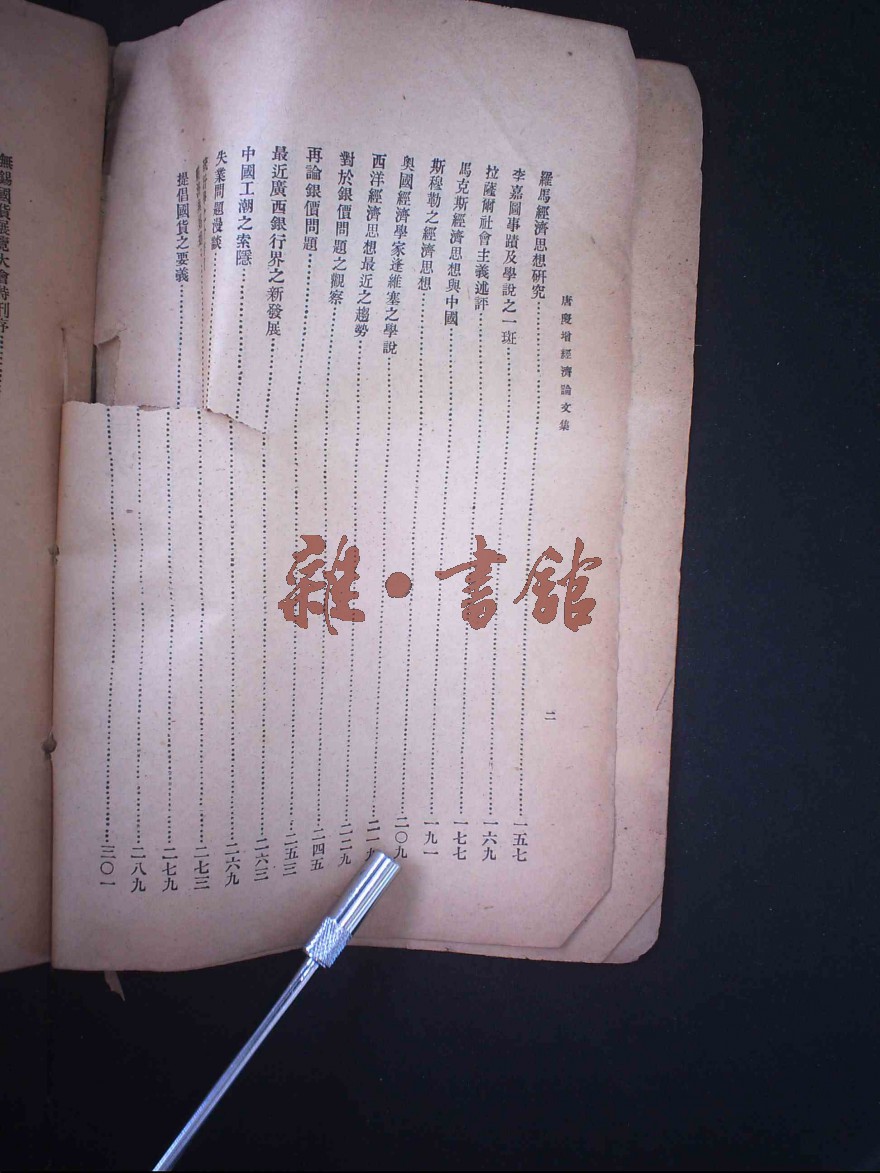 唐慶增經濟論文集
二
羅馬經濟思想硏究……一五七
李嘉圖事蹟及學說之一斑……一六九
拉薩爾社會主義述評……一七七
馬克斯經濟思想與中國……一九一
斯穆勒之經濟思想……二〇九
奧國經濟學家逢維塞之學說……二一九
西洋經濟思想最近之趨勢……二二九
對於銀價問題之觀察……二四五
再論銀價問題……二五三
最近廣西銀行界之新發展……二六三
中國工潮之索隱……二六九
失業問題漫談……二七三
……二七九
提倡國貨之要義……二八九
……三〇一
無錫國貨展覽大會特刊序……
雜·書館